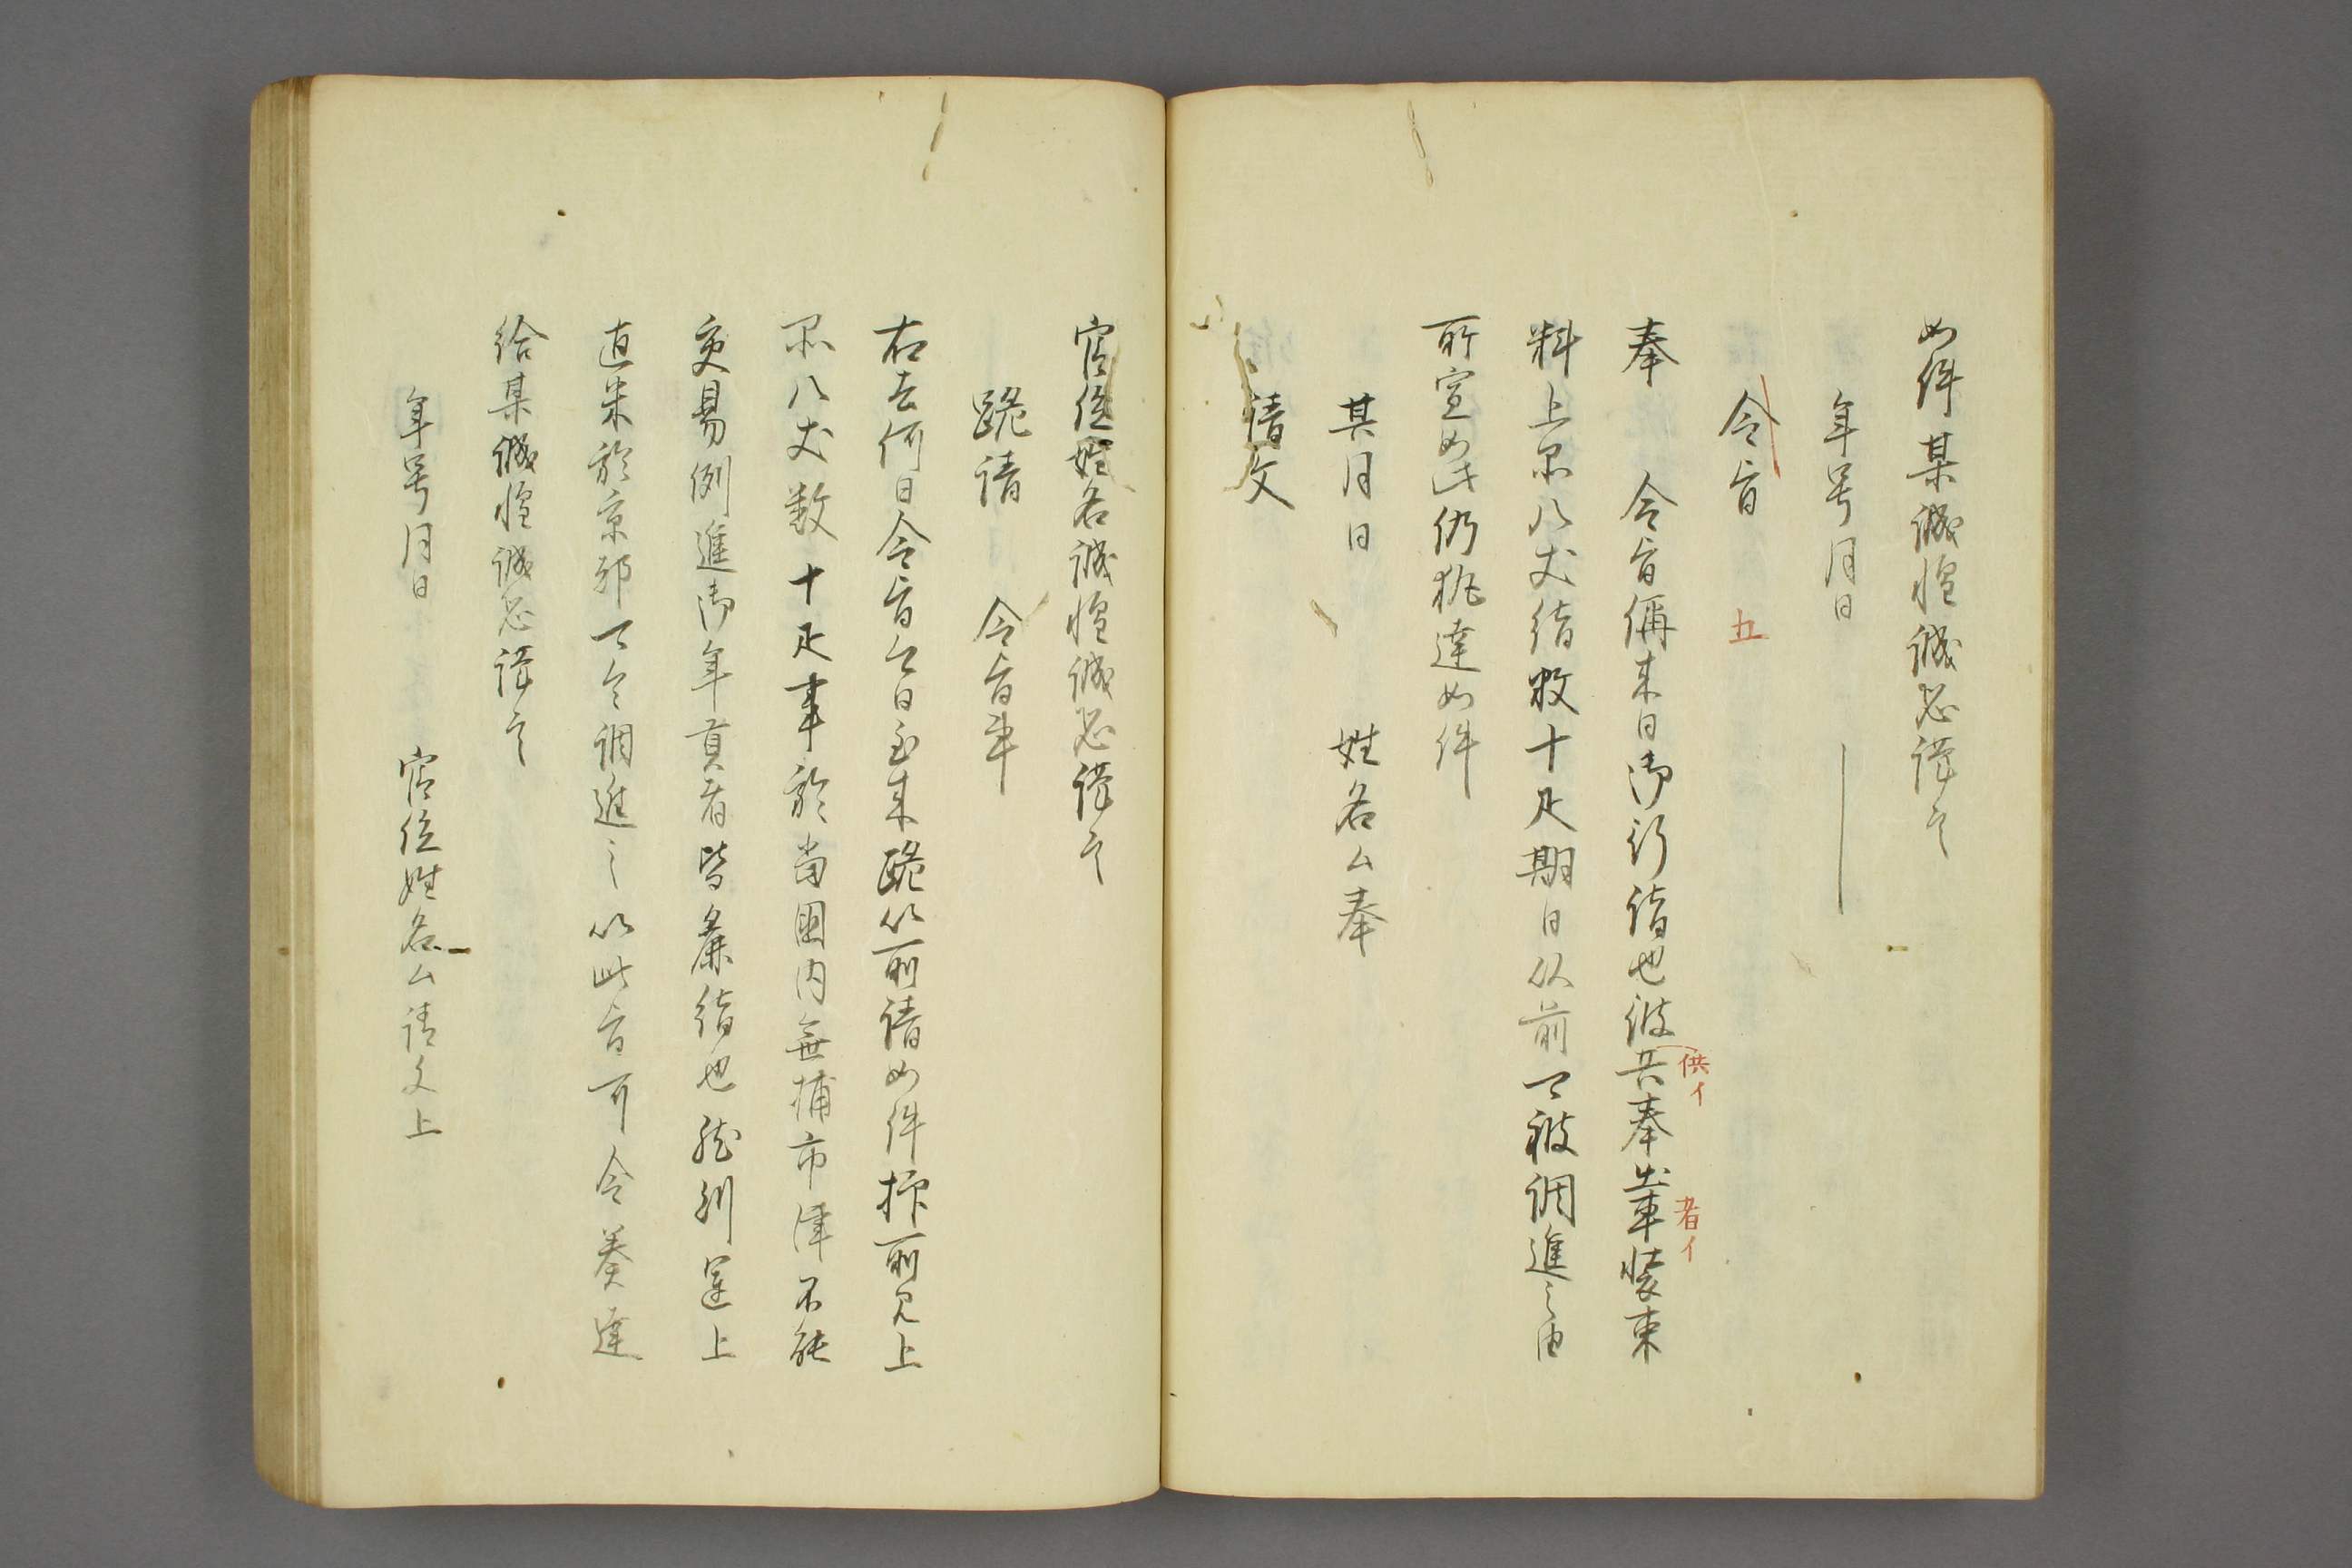 如件某誠惶誠恐謹言
年号月日
令旨 五
奉 令旨偁来日御行詣也彼共奉出車装束
供イ
者イ
料上品八丈絹数十疋期日以前可被調進之由
所宣如此仍執達如件
其月日 姓名ム奉
請文
官位姓名誠惶誠恐謹言
跪請 令旨事
右去何日令旨今日至来跪以所請如件抑所見上
品八丈数十疋事於当国内無捕市津不能
交易例進御年貢者皆麁絹也然則運上
直米於京都可令調進之以此旨可令奏達
給某誠惶誠恐謹言
年号月日 官位姓名ム請文上